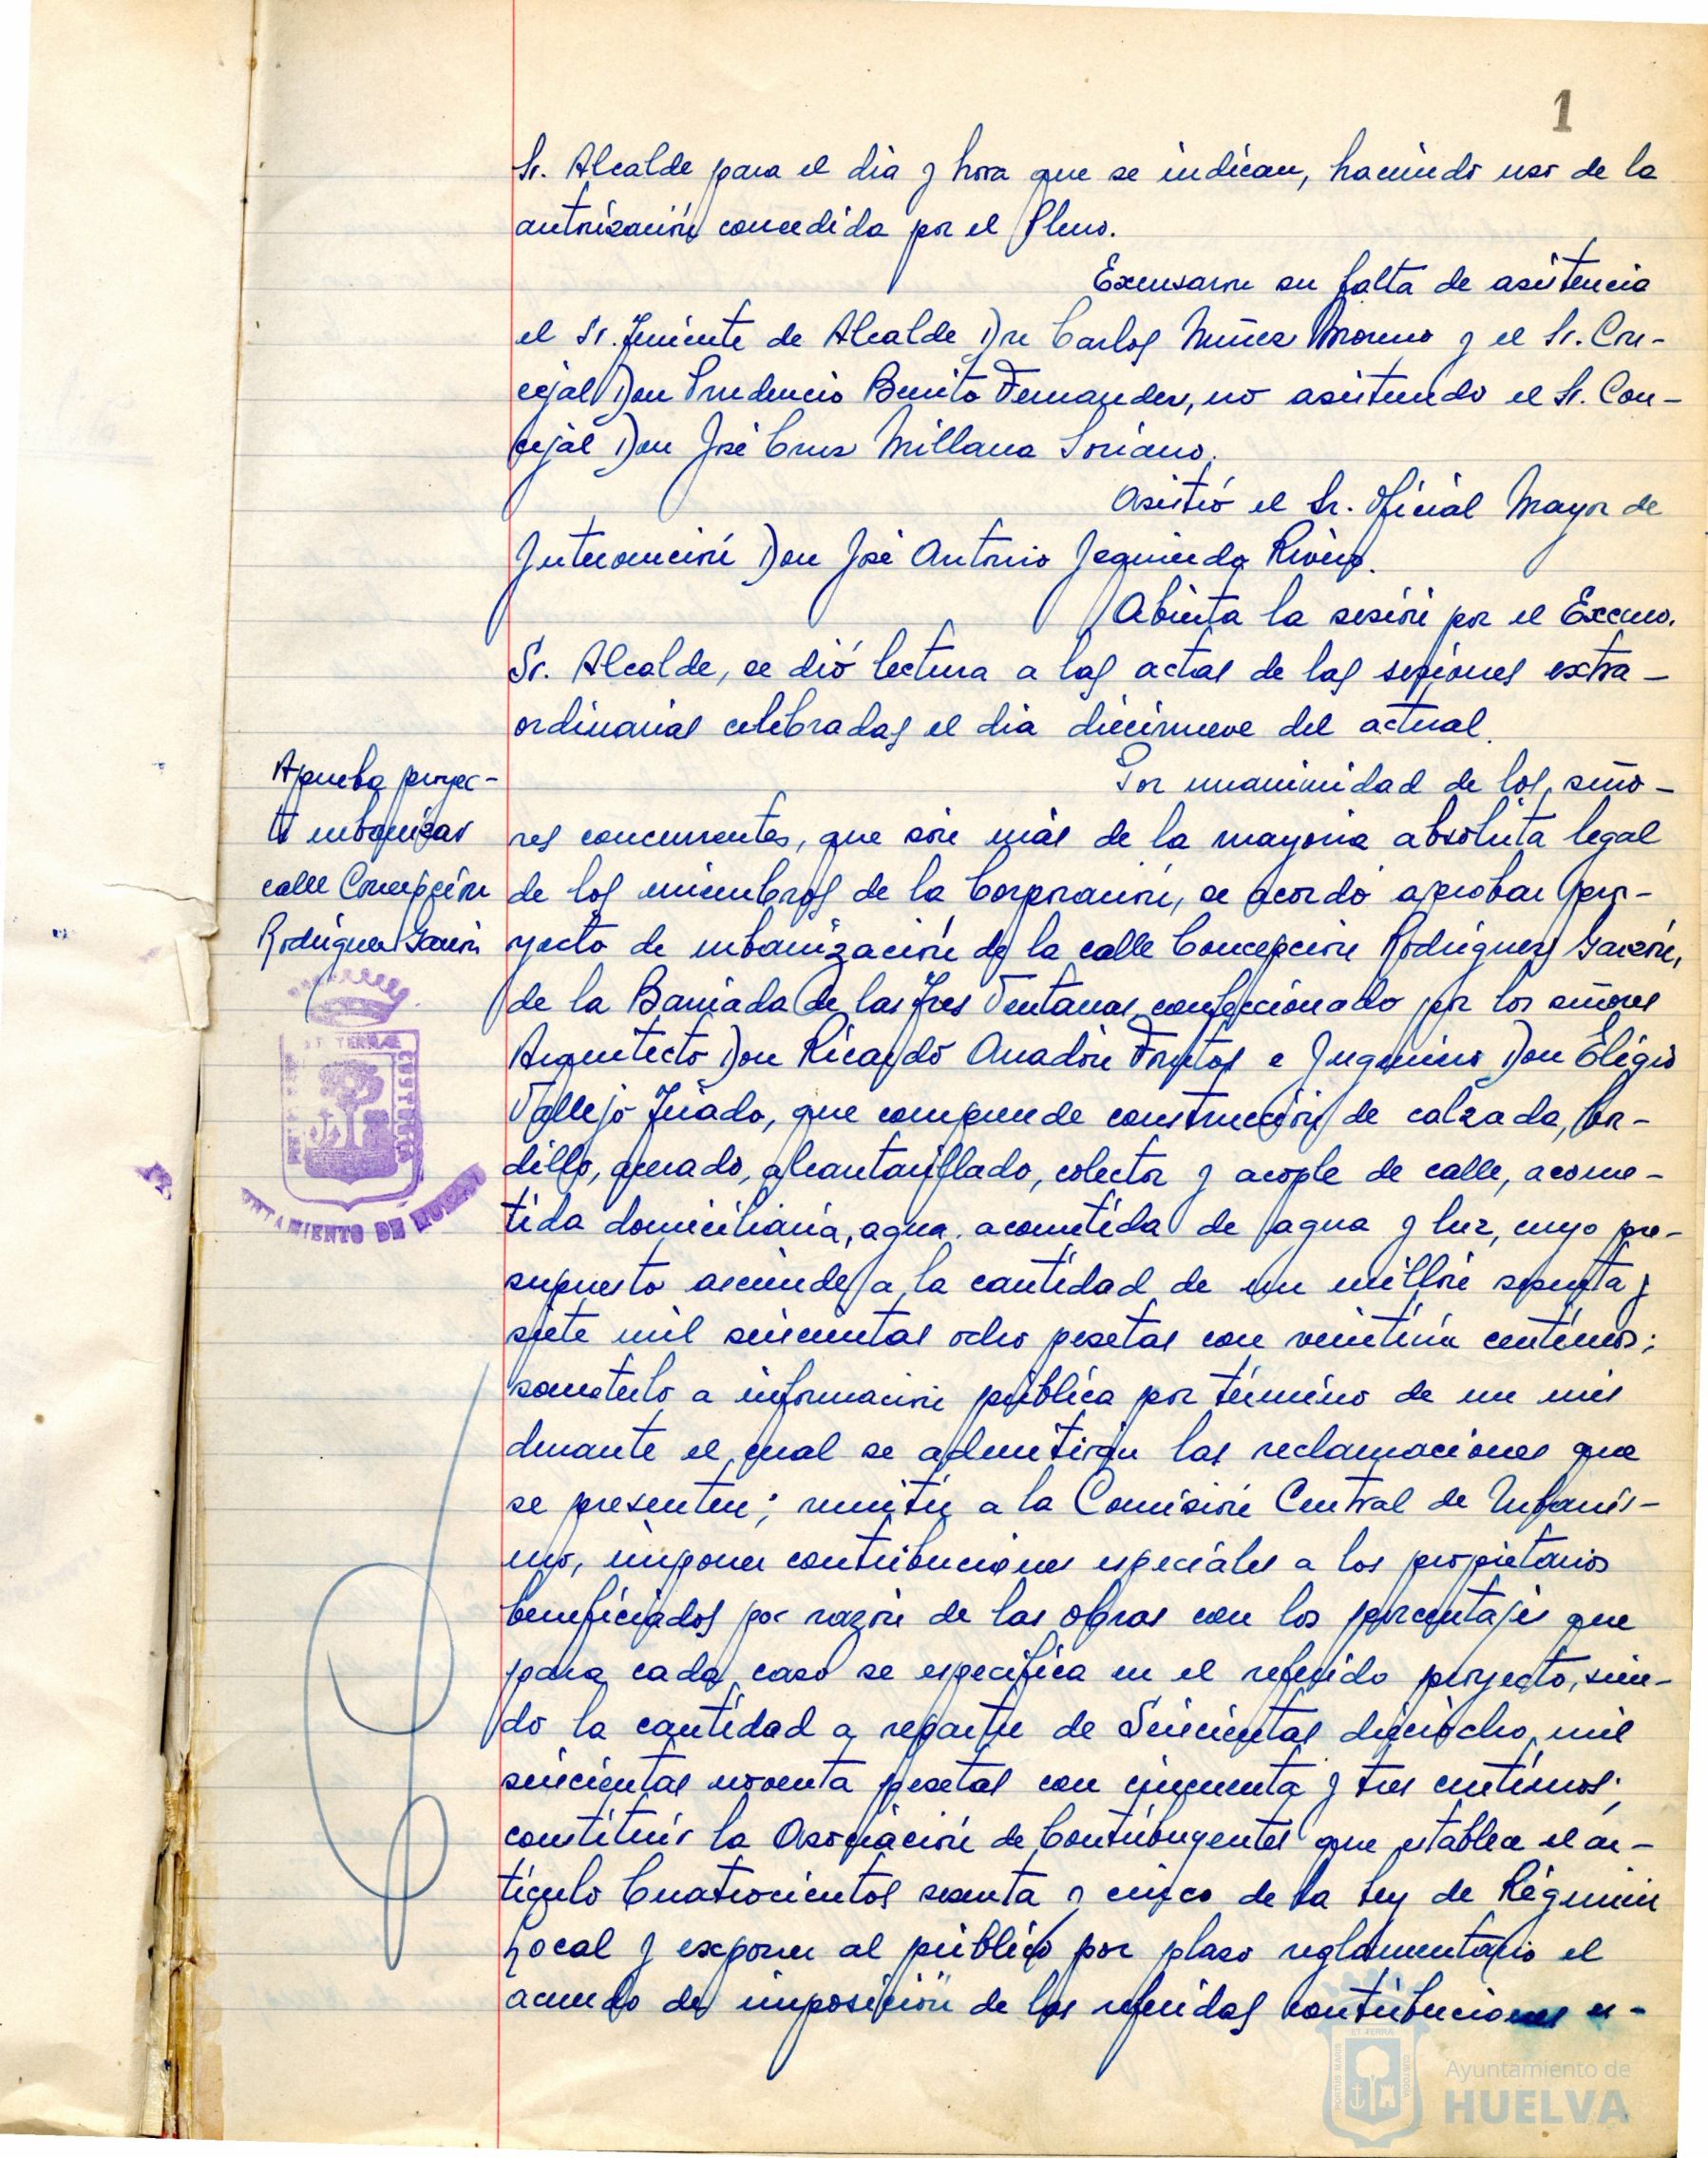 1
Sr. Alcalde para el dia y hora que se indican, haciendo uso de la
autorización concedida por el Pleno.
Excusaron su falta de asistencia
el Sr. Teniente de Alcalde Don Carlos Nuñez Moreno y el Sr. Con-
cejal Don Prudencio Benito Fernandez, no asistiendo el Sr. Con-
cejal Don José Cruz Millana Soriano.
Asistió el Sr. Oficial Mayor de
Intervención Don José Antonio Izquierdo Rivero.
Abierta la sesión por el Excmo.
Sr. Alcalde, se dió lectura a las actas de las sesiones extra-
ordinarias celebradas el dia diecinueve del actual.
Aprueba proyec-
to urbanizar
calle Concepción
Rodriguez Garzón
Por unanimidad de los seño-
res concurrentes, que son más de la mayoria absoluta legal
de los miembros de la Corporación, se acordó aprobar pro-
yecto de urbanización de la calle Concepción Rodriguez Garzón,
de la Barriada de las Tres Ventanas, confeccionado por los señores
Arquitecto Don Ricardo Anadón Frutos e Ingeniero Don Eligio
Vallejo Triado, que comprende construcción de calzada, bor-
dillo, acerado, alcantarillado, colector y acople de calle, acome-
tida domiciliaria, agua, acometida de agua y luz, cuyo pre-
supuesto asciende a la cantidad de un millón sesenta y
siete mil seiscientas ocho pesetas con veintiún centimos;
someterlo a información pública por término de un mes
durante el cual se admitirán las reclamaciones que
se presenten; remitir a la Comisión Central de Urbanis-
mo, imponer contribuciones especiales a los propietarios
beneficiados por razón de las obras con los porcentajes que
para cada caso se especifica en el referido proyecto, sien-
do la cantidad a repartir de Seiscientas dieciocho mil
seiscientas noventa pesetas con cincuenta y tres centimos;
constituir la Asociación de Contribuyentes que establece el ar-
tículo Cuatrocientos sesenta y cinco de la Ley de Régimen
Local y exponer al público por plazo reglamentario el
acuerdo de imposición de las referidas contribuciones es-
ET TERRAE
CUSTODIA
AYUNTAMIENTO DE HUELVA
Ayuntamiento de
HUELVA